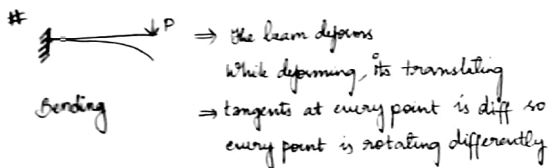 #
P
⇒ the beam deforms
While deforming, its translating
Bending
⇒ tangents at every point is diff so
every point is rotating differently